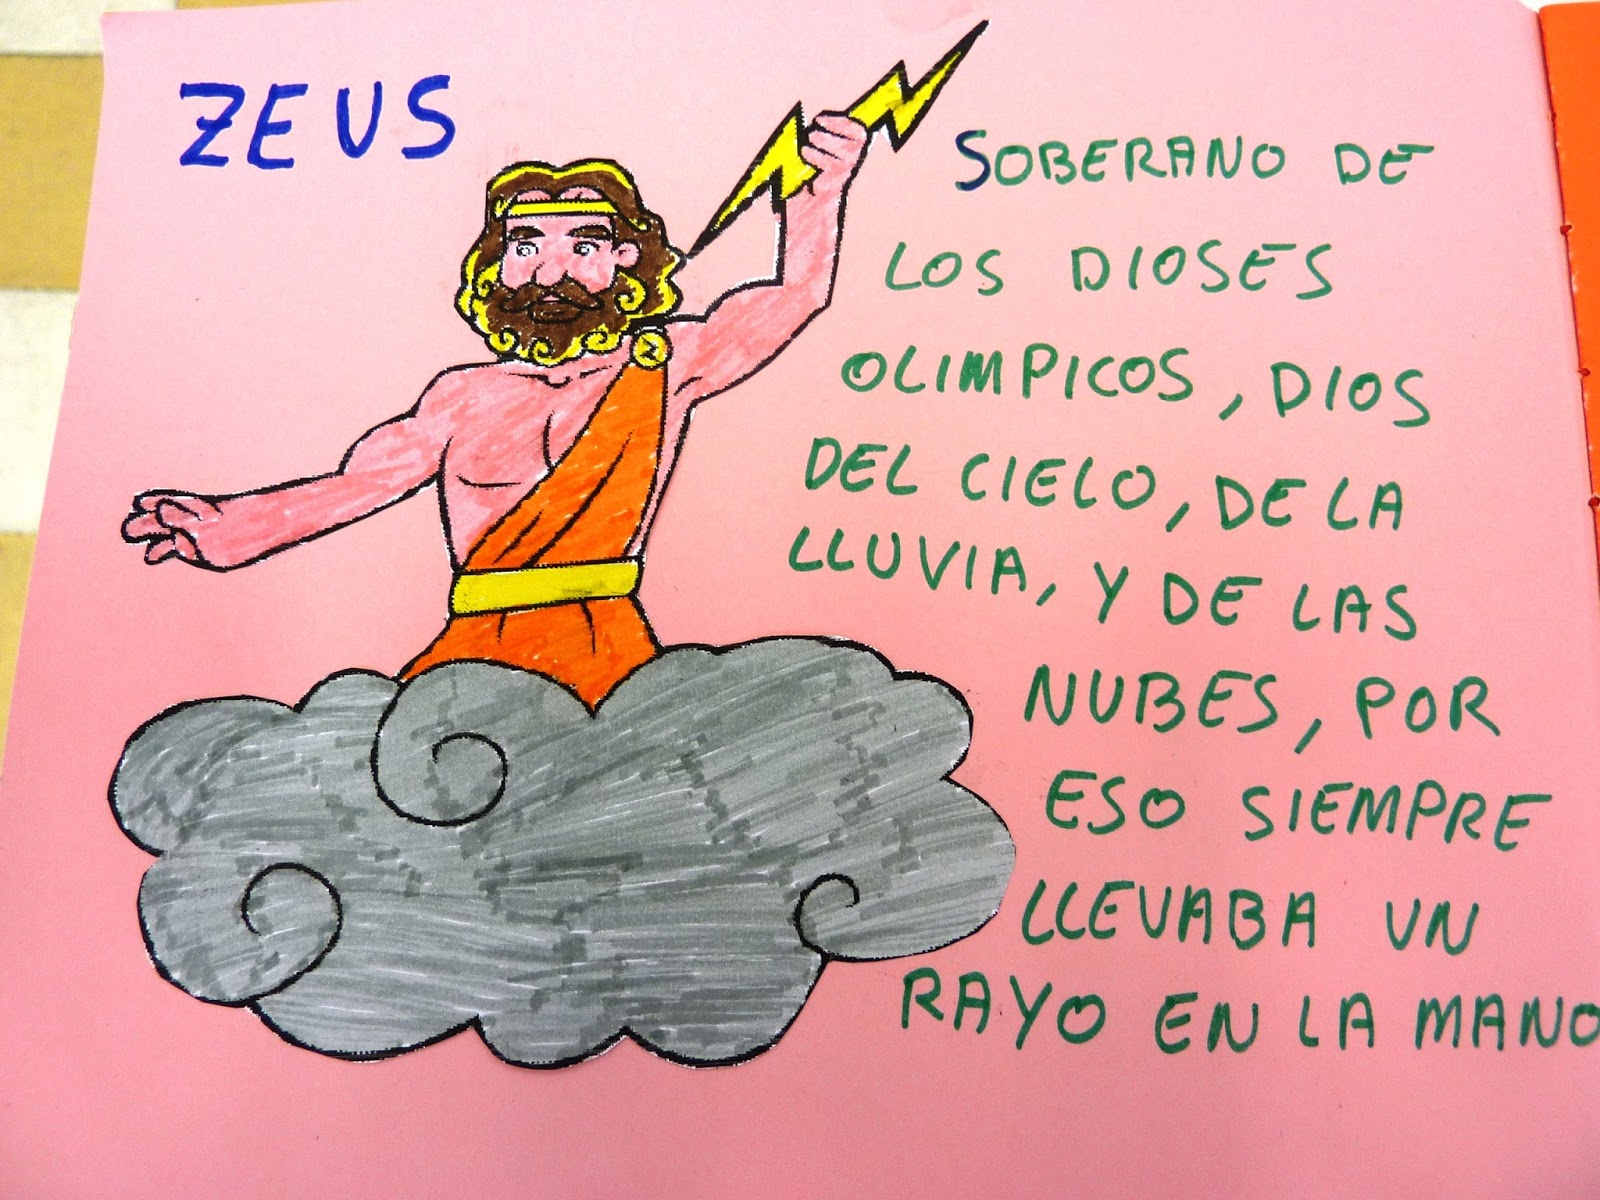 ZEUS
SOBERANO DE
LOS DIOSES
OLIMPICOS, DIOS
DEL CIELO, DE LA
LLUVIA, Y DE LAS
NUBES, POR
ESO SIEMPRE
LLEVABA UN
RAYO EN LA MANO